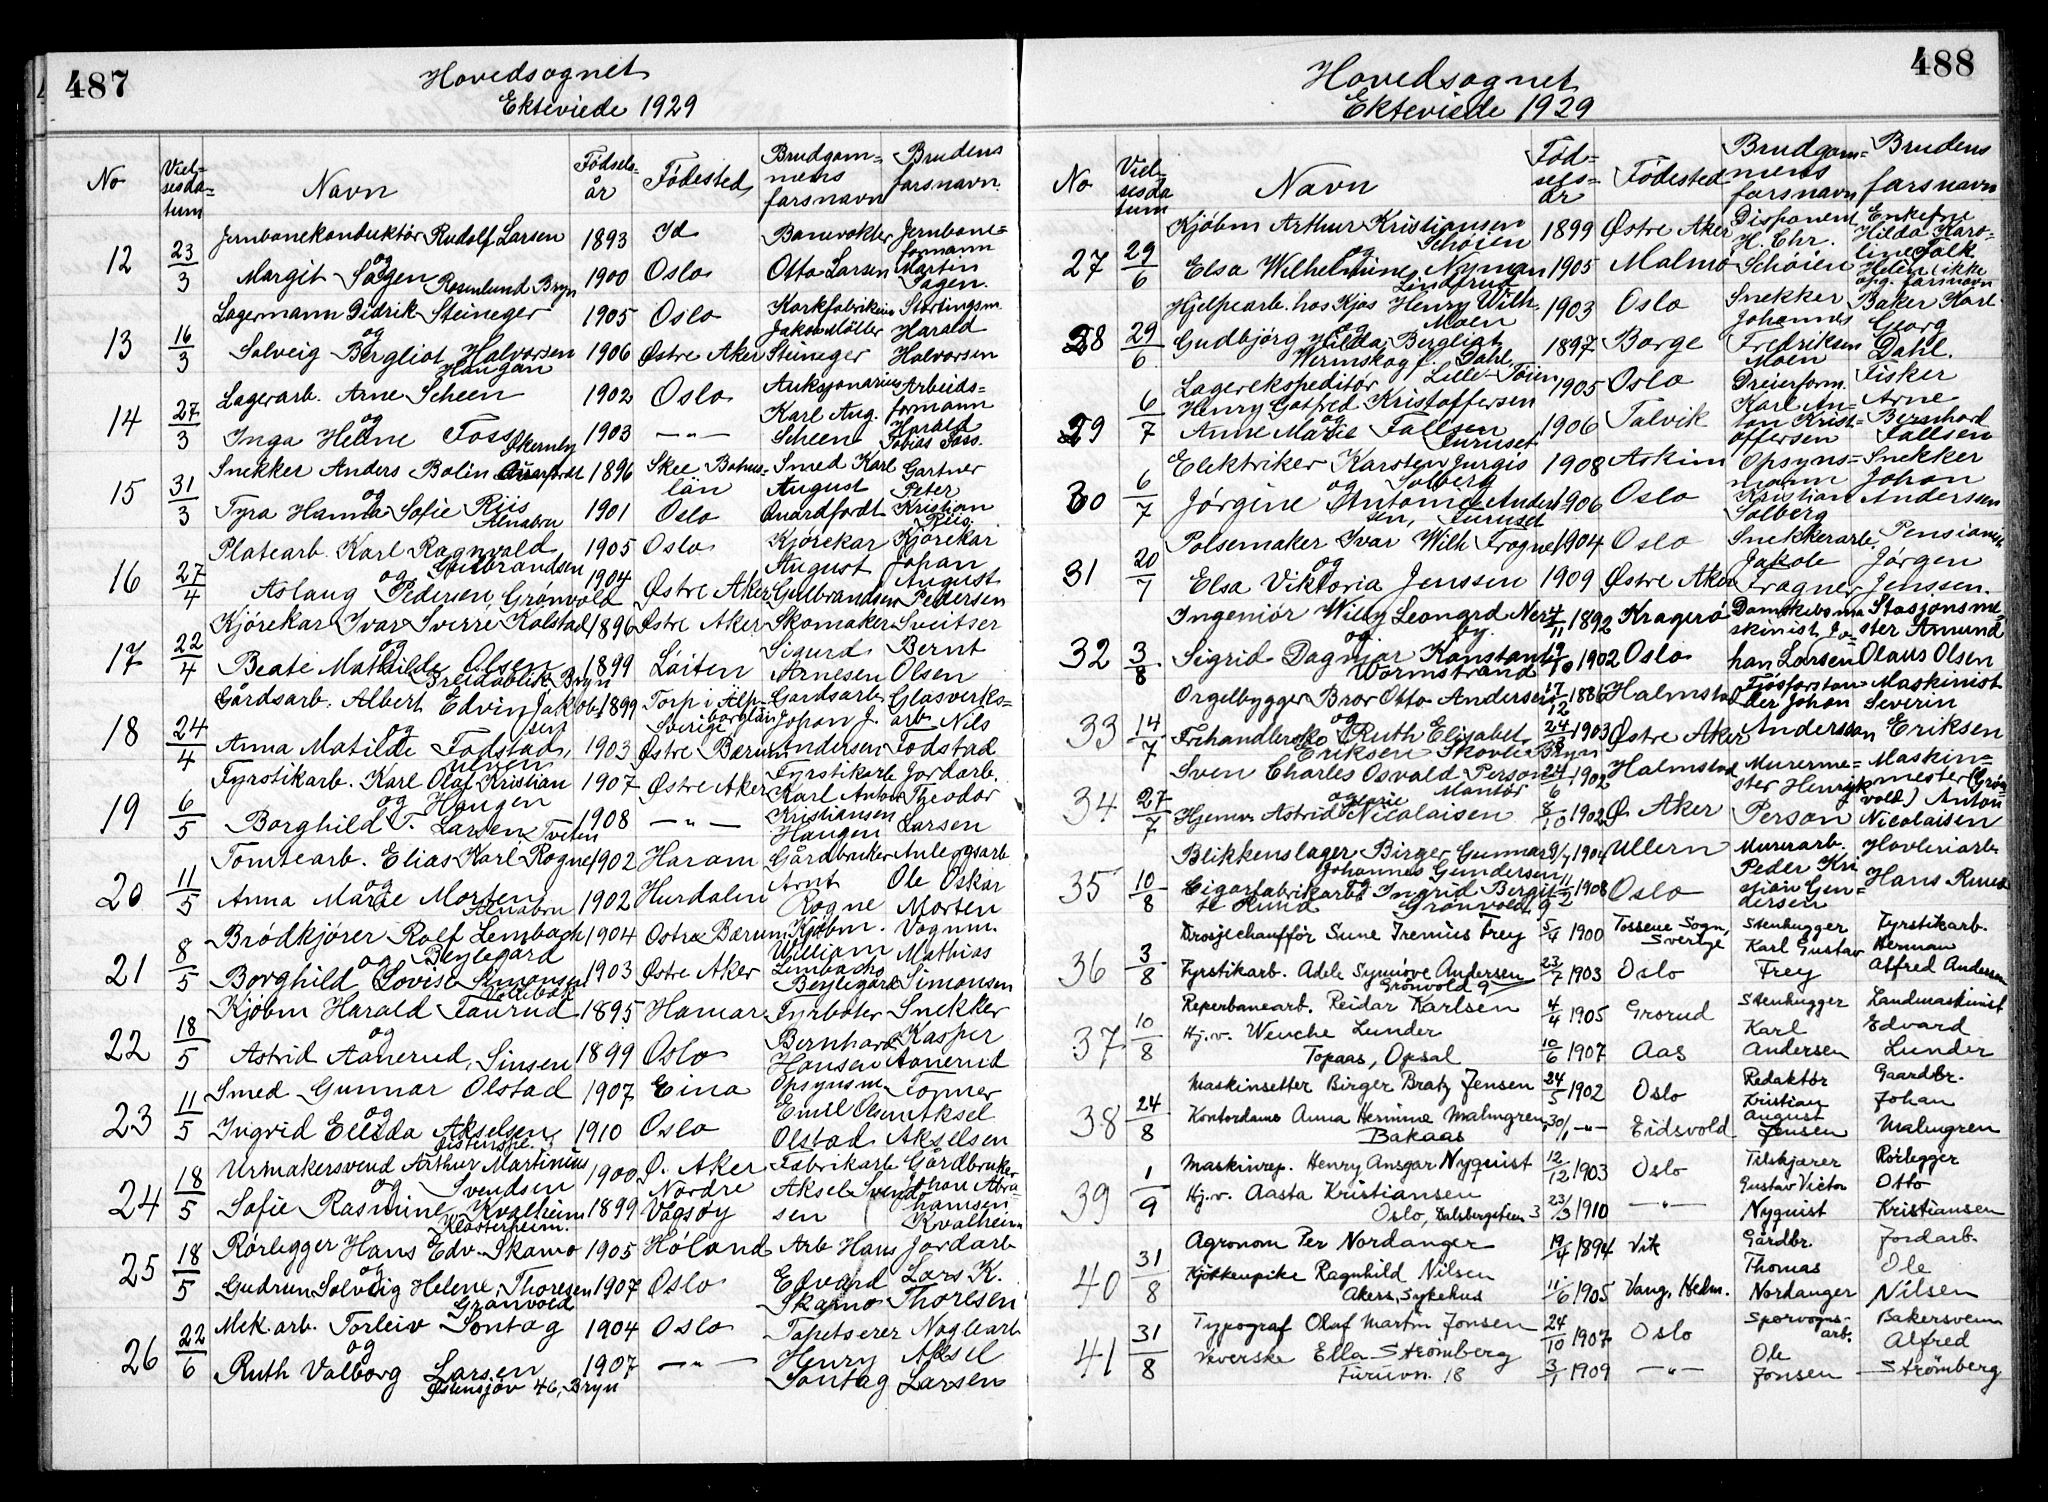 487
Hovedsognet
Ekteviede 1929
No
Viel-
sesda-
tum
Navn
Fødsels-
år
Fødested
Brudgom-
mens
farsnavn
Brudens
farsnavn
12
23/3
Jernbanekonduktør Rudolf Larsen 1893 Id
og
Margit Sagen Rosenlund Bryn 1900 Oslo
Banevokter
Otto Larsen
Jernbane-
formann
Martin
Sagen.
13
16/3
Lagermann Didrik Steineger 1905 Oslo
og
Solveig Bergliot Halvorsen 1906 Østre Aker
Haugan
Korkfabrikeier
Jakob Møller
Steineger
Stortingsm.
Harald
Halvorsen
14
27/3
Lagerarb. Arne Scheen 1902 Oslo
og
Inga Helene Foss Økernby 1903 —"—
Auksjonarius
Karl Aug.
Scheen
Arbeids-
formann
Harald
Tobias Foss.
15
31/3
Snekker Anders Bolin 1896 Skee Bohus-
län
og
Tyra Hanna Sofie Riis 1901 Oslo
Alnabru
Smed Karl
August
Quardfordt
Gartner
Peter
Kristian
Riis
16
27/4
Platearb. Karl Ragnvald 1905 Oslo
Gulbrandsen
og
Aslaug Pedersen, Grønvold 1904 Østre Aker
Kjørekar
August
Gulbrandsen
Kjørekar
Johan
August
Pedersen
17
22/4
Kjørekar Ivar Sverre Kolstad 1896 Østre Aker
og
Beate Mathilde Olsen 1899 Løiten
Breidablik Bryn
Skomaker
Sigurd
Arnesen
Sveitser
Bernt
Olsen
18
24/4
Gårdsarb. Albert Edvin Jakob- 1899 Torp i Älp-
sen borglän
Sverige
og
Anna Matilde Fodstad, 1903 Østre Bærum
Ulven
Gårdsarb.
Johan J.
Andersen
Glasverks-
arb. Nils
Fodstad
19
6/5
Fyrstikarb. Karl Olaf Kristian 1907 Østre Aker
og Haugen
Borghild T. Larsen, Tveten 1908 —"—
Fyrstikarb.
Karl Anton
Kristiansen
Haugen
Jordarb.
Theodor
Larsen
20
11/5
Tomtearb. Elias Karl Rogne 1902 Haram
og
Anna Marie Morten 1902 Hurdalen
Alnabru
Gårdbruker
Arnt
Rogne
Anleggsarb.
Ole Oskar
Morten
21
8/5
Brødkjører Rolf Lembach 1904 Østre Bærum
og Beylegård
Borghild Lovise Simonsen 1903 Østre Aker
Kjøbm.
William
Lembachs
Beylegård
Vognm.
Mathias
Simonsen
22
18/5
Kjøbm Harald Faurud 1895 Hamar
og
Astrid Aanerud, Sinsen 1899 Oslo
Fyrbøter
Bernhard
Hansen
Snekker
Kasper
Aanerud
23
11/5
Smed Gunnar Olstad 1907 Eina
og
Ingrid Elida Akselsen 1910 Oslo
Opsynsm
Emil Olsen
Olstad
Tomer
Aksel
Akselsen
24
18/5
Urmakersvend Arthur Martinius 1900 Ø. Aker
og Svendsen
Sofie Rasmine Kvalheim 1899 Nordre
Vågsøy
Klosterheim.
Fabrikarb
Aksel Svend-
sen
Gårdbruker
Johan Abra-
hamsen
Kvalheim
25
18/5
Rørlegger Hans Edv. Skamo 1905 Høland
og
Gudrun Solveig Helene Thoresen 1907 Oslo
Grønvold
Arb Hans
Edvard
Skamo
Jordarb
Lars K.
Thoresen
26
22/6
Mek. arb. Torleiv Sontag 1904 Oslo
og
Ruth Valborg Larsen 1907 —"—
Østensjøv 46, Bryn
Tapetserer
Henry
Sontag
Naglearb
Aksel
Larsen
488
Hovedsognet
Ekteviede 1929
No
Viel-
sesda
tum
Navn
Fød-
sels-
år
Fødested
Brudgom-
mens
farsnavn
Brudens
farsnavn
27
29/6
Kjøbm Arthur Kristiansen 1899 Østre Aker
og Schøien
Elsa Wilhelmine Nyman 1905 Malmø
Lindrud
Disponent
H. Chr.
Schøien
Enkefrue
Hilda Karo-
line Falk
Helen (ikke
opg. farsnavn
28
29/6
Hjelpearb. hos Kjøs Henry Wilh. 1903 Oslo
og Moen
Gudbjørg Hilda Bergliot 1897 Borge
Dahl,
Snekker
Johannes
Fredriksen
Moen
Baker Karl
Georg
Dahl.
29
6/7
Lagerekspeditør Lille-Tøien 1905 Oslo
Henry Gotfred Kristoffersen
og
Anne Marie Fallsen 1906 Talvik
Furuset
Dreierform.
Karl An-
ton Krist-
offersen
Fisker
Arne
Bernhard
Fallsen
30
6/7
Elektriker Karsten Jurgis 1908 Askim
og Solberg
Jørgine Antonie Ander- 1906 Oslo
sen, Furuset
Opsyns-
mann
Kristian
Solberg
Snekker
Johan
Andersen
31
20/7
Pølsemaker Ivar Wilh Frogner 1904 Oslo
og
Elsa Viktoria Jenssen 1909 Østre Aker
Snekkerarb.
Jakob
Frogner
Pensionist
Jørgen
Jenssen.
32
3/8
Ingeniør Willy Leonard Ner- 4/11 1892 Kragerø
og by.
Sigrid Dagmar Konstance 9/10 1902 Oslo
Wormstrand
Dampskibsma
skinist Jo-
han Larsen
Stasjonsme-
ster Amund
Olaus Olsen
33
14/7
Orgelbygger Bror Otto Andersen 17/12 1886 Halmstad
og
Frk. Ruth Elisabet 24/8 1903 Østre Aker
Eriksen Skovlia Bryn
Fjøsforstan-
der Johan
Andersson
Maskinist
Severin
Eriksen
34
27/7
Sven Charles Osvald Person 24/6 1902 Halmstad
og Montør
Hjemv. Astrid Marie Nicolaisen 8/10 1902 Ø. Aker
Murerme-
ster Henryk
Person
Maskin-
mester (Grøn-
vold) Anton
Nicolaisen
35
10/8
Blikkenslager Birger Gunnar 1904 Ullern
Johannes Gundersen
Sigarfabrikarb. Ingrid Bergit- 11/2 1908 Oslo
te Ruud Grønvold 9
Murerarb.
Peder Kri
stian Gun-
dersen
Høvleriarb.
Hans Ruud
36
3/8
Drosjechauffør Sune Irenius Frey 5/4 1900 Tossene Sogn,
Sverige
Fyrstikarb. Adele Synnøve Andersen 23/7 1903 Oslo
Grønvold 9
Stenhugger
Karl Gustav
Frey
Fyrstikarb.
Herman
Alfred Andersen
37
10/8
Reperbanearb. Reidar Karlsen 4/4 1905 Grorud
Hj.v. Wenche Lunder
Topaas, Opsal 10/6 1907 Aas
Stenhugger
Karl
Andersen
Landmaskinist
Edvard
Lunder
38
24/8
Maskinsetter Birger Bratz Jensen 24/5 1902 Oslo
Kontordame Anna Hermine Malmgren, 30/1 —"— Eidsvold
Bakaas
Redaktør
Kristian
August
Jensen
Gaardbr.
Johan
Malmgren
39
1/9
Maskinrep. Henry Ansgar Nyquist 12/12 1903 Oslo
Hj.v. Aasta Kristiansen
Oslo, Dalsbergstien 3 23/3 1910 —"—
Tilskjærer
Gustav Victor
Nyquist
Rørlegger
Otto
Kristiansen
40
31/8
Agronom Per Nordanger 19/4 1894 Vik
Kjøkkenpike Ragnhild Nilsen
Akers, Sykehus 11/6 1905 Vang, Hedm.
Gårdbr.
Thomas
Nordanger
Jordarb.
Ole
Nilsen
41
31/8
Typograf Olaf Martin Jonsen 24/10 1907 Oslo
Veverske Ella Strømberg
Furuvn. 18 3/1 1909 —"—
Sporvogns-
arb.
Ole
Jonsen
Bakersvenn
Alfred
Strømberg